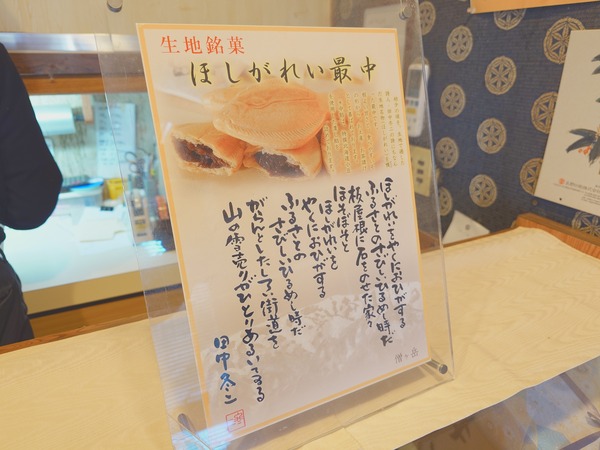 生地銘菓
ほしがれい最中
ほしがれいをやくにおひがする
ふるさとのさびしいひるめし時だ
板屋根に石をのせた家々
ほそぼそと
ほしがれいを
やくにおひがする
ふるさとの
さびしいひるめし時だ
がらんとしたしろい街道を
山の雪売りがひとりあるいてゐる
田中冬二
僧ヶ岳